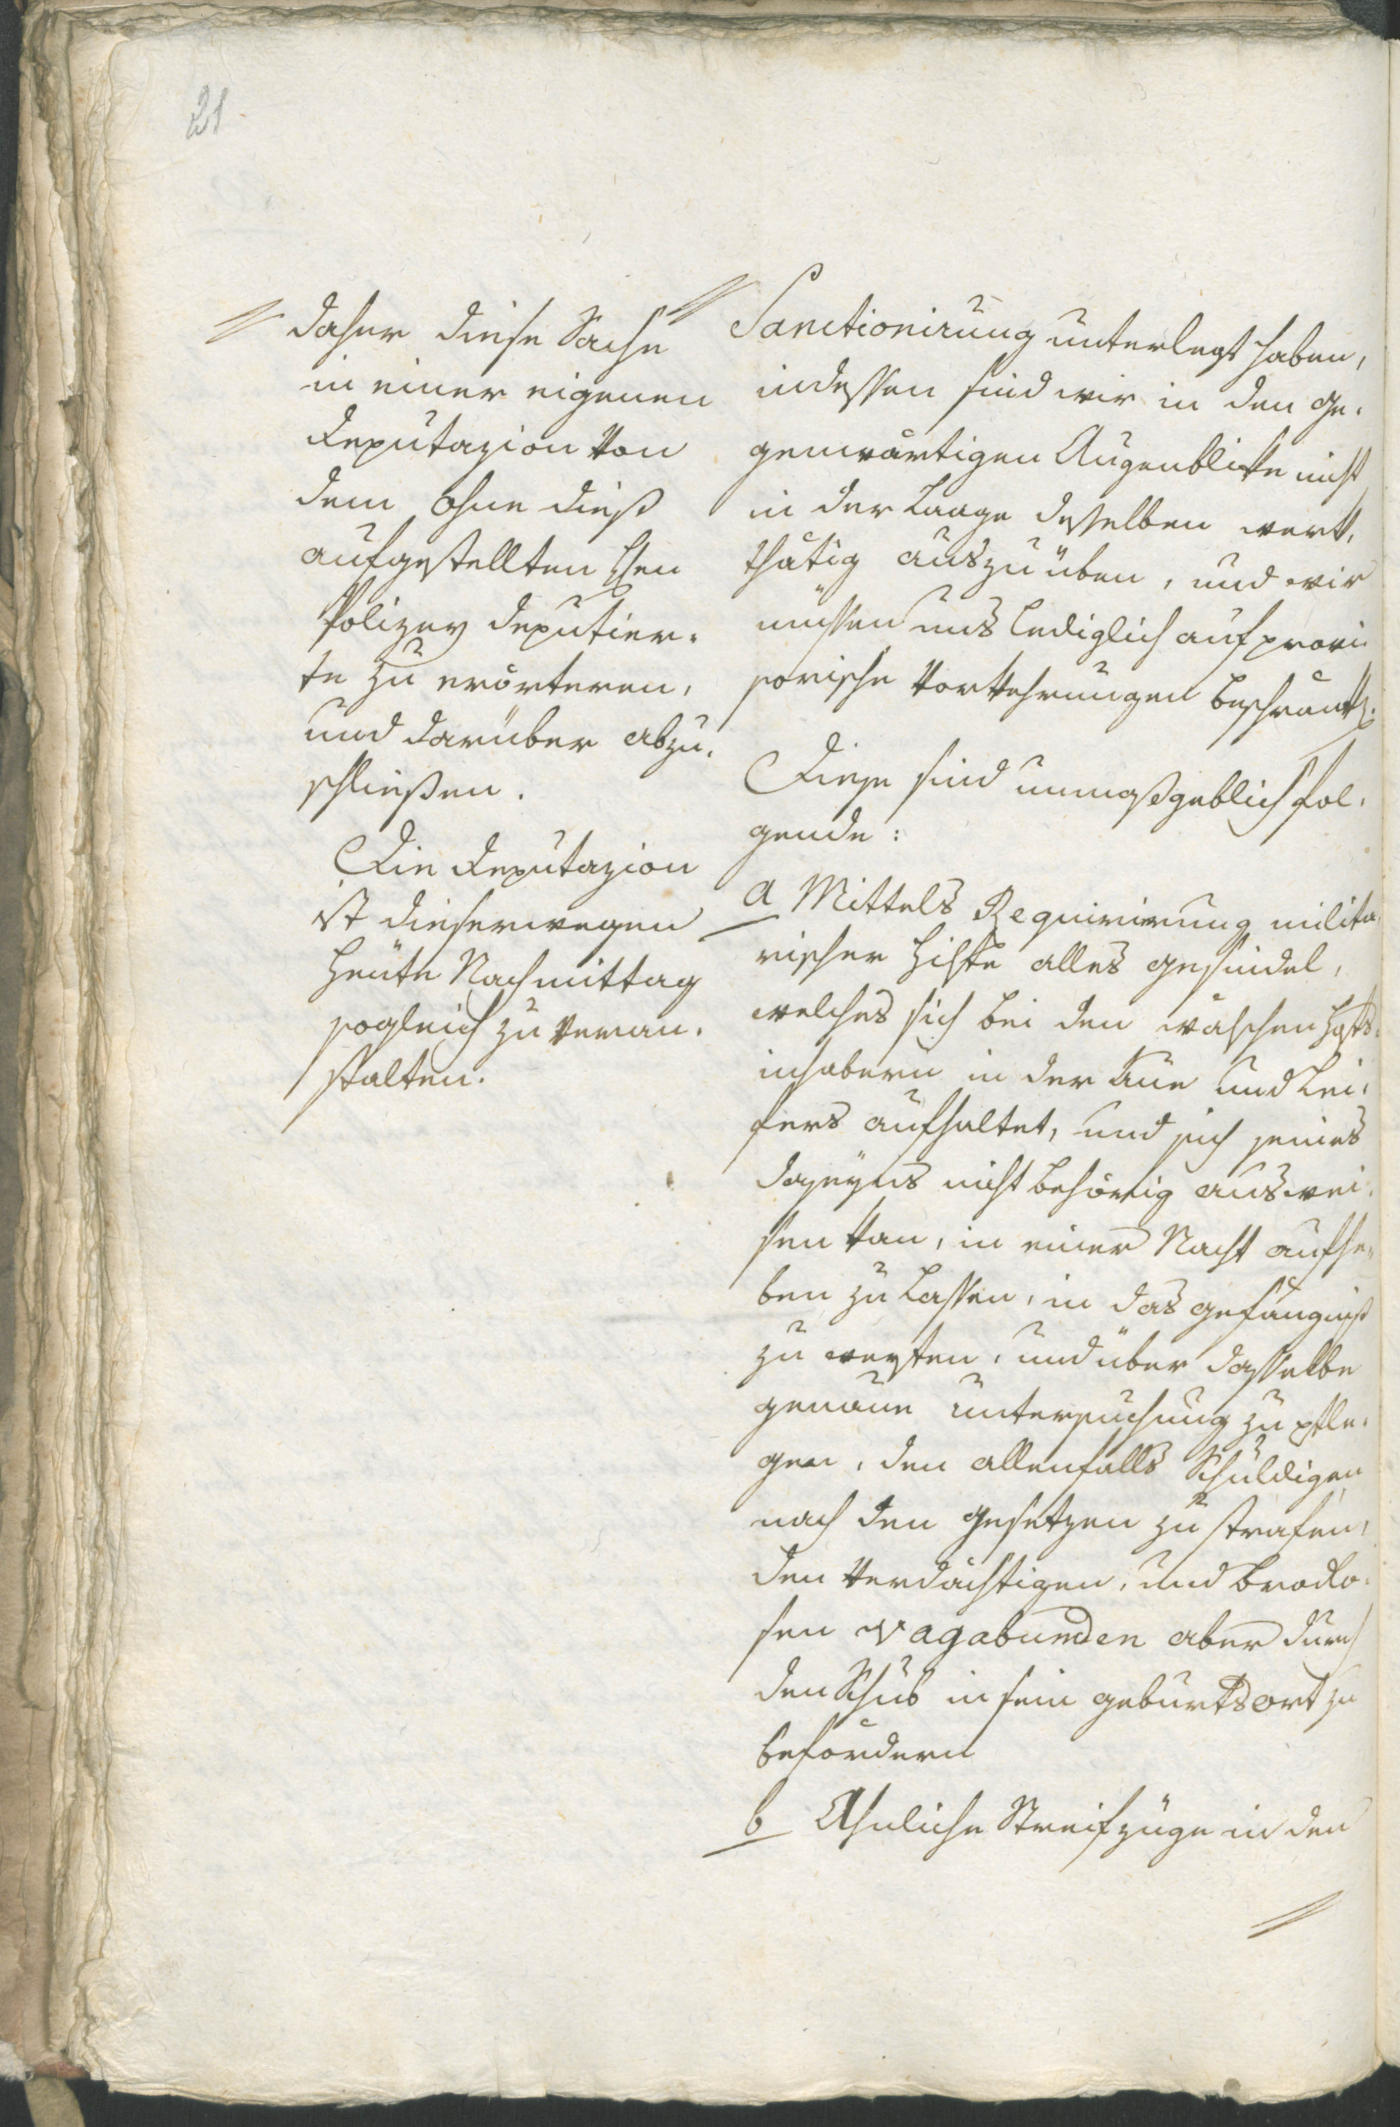 21
daher diese Sache
in einer eigenen
Deputazion von
dem ohne dieß
aufgestellten Hen
Polizey Deputier-
te zu erörteren,
und darüber abzu-
schließen.
Die Deputazion
ist dieserwegen
heute Nachmittag
sogleich zu veran-
stalten.
Sanctionirung unterlegt haben,
indessen sind wir in den ge-
genwärtigen Augenblicke nicht
in der Laage desselben werk-
thätig auszuüben, und wir
müssen uns lediglich auf provi-
sorische Vorkehrungen beschränk
Diese sind unmaßgeblich fol-
gende:
a Mittels Requirirung milita-
rischer Hilfe alles gesindel,
welches sich bei den wälschen Hofs-
inhabern in der Aue und Lei-
fers aufhaltet, und sich seines
daseyns nicht behörig auswei-
sen kan, in einer Nacht aufhe-
ben zu lassen, in das gefängniß
zu werfen, und über dasselbe
genaue untersuchung zu pfle-
gen, den allenfalls Schuldigen
nach den gesetzen zu strafen,
den verdächtigen, und brodlo-
sen Vagabunden aber durch
den Schub in sein geburtsort zu
befördern
b Ähnliche Streifzüge in den